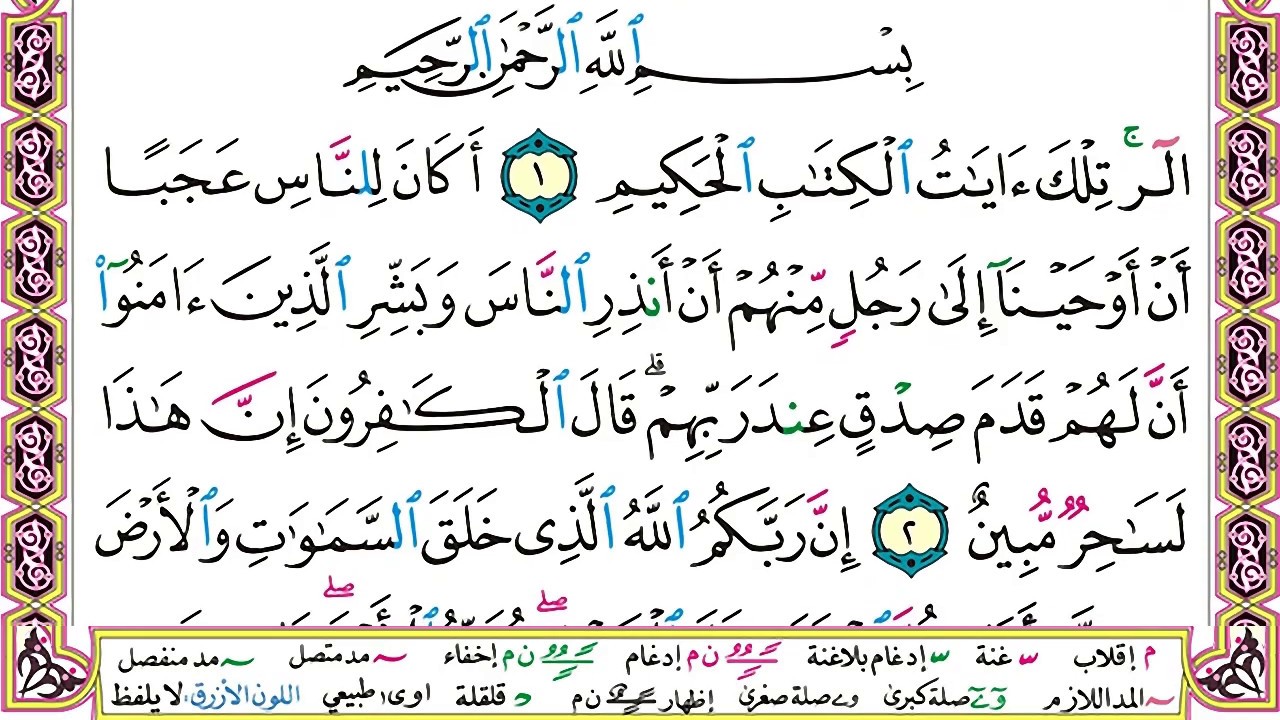 بِسْمِ ٱللَّهِ ٱلرَّحْمَٰنِ ٱلرَّحِيمِ
الٓرۚ تِلْكَ ءَايَٰتُ ٱلْكِتَٰبِ ٱلْحَكِيمِ ١ أَكَانَ لِلنَّاسِ عَجَبًا
أَنْ أَوْحَيْنَآ إِلَىٰ رَجُلٍ مِّنْهُمْ أَنْ أَنذِرِ ٱلنَّاسَ وَبَشِّرِ ٱلَّذِينَ ءَامَنُوٓا۟
أَنَّ لَهُمْ قَدَمَ صِدْقٍ عِندَ رَبِّهِمْۗ قَالَ ٱلْكَٰفِرُونَ إِنَّ هَٰذَا
لَسَٰحِرٌ مُّبِينٌ ٢ إِنَّ رَبَّكُمُ ٱللَّهُ ٱلَّذِى خَلَقَ ٱلسَّمَٰوَٰتِ وَٱلْأَرْضَ
م إقلاب غنة إدغام بلاغنة ن م إدغام ن م إخفاء مد متصل مد منفصل
المد اللازم صلة كبرى صلة صغرى إظهار ن م قلقلة اوى طبيعي اللون الأزرق: لا يلفظ